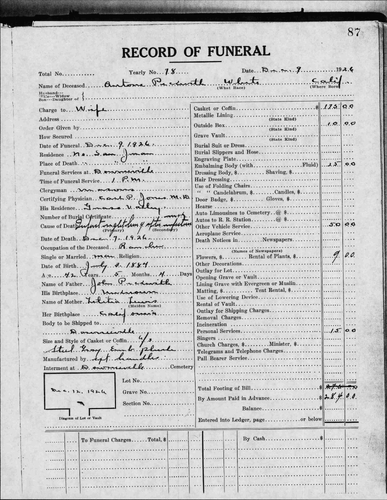 87
RECORD OF FUNERAL
Total No. Yearly No. 98 Date Dec. 9 1926
Name of Deceased Antone White Calif.
(What Race) (Where Born)
Husband—
Wife—Widow
Son—Daughter of
Charge to Wife
Address
Order Given by
How Secured
Date of Funeral Dec. 9. 1926.
Residence No. San Juan
Place of Death " " "
Funeral Services at Downieville
Time of Funeral Service 1 P.M.
Clergyman
Certifying Physician Carl P. Jones M.D.
His Residence Grass Valley
Number of Burial Certificate
Cause of Death
(Primary) (Secondary)
Date of Death Dec 7. 1926.
Occupation of the Deceased
Single or Married Religion
Date of Birth July 3. 1884
Aged 42 Years 5 Months 4 Days
Name of Father John
His Birthplace
Name of Mother Lewis
(Maiden Name)
Her Birthplace California
Body to be Shipped to
Downieville
Size and Style of Casket or Coffin 6/3
Steel Gray
Manufactured by
Interment at Downieville Cemetery
Lot No.
Grave No.
Section No.
Dec. 12, 1926
Diagram of Lot or Vault
Casket or Coffin $ 175 00
Metallic Lining
(State Kind)
Outside Box 10 00
(State Kind)
Grave Vault
(State Kind)
Burial Suit or Dress
Burial Slippers and Hose
Engraving Plate
Embalming Body (with Fluid) 25 00
Dressing Body, $ Shaving, $
Hair Dressing
Use of Folding Chairs
" " Candelabrum, $ Candles, $
Door Badge, $ Gloves, $
Hearse
Auto Limousines to Cemetery @ $
Autos to R. R. Station @ $
Other Vehicle Service 50 00
Aeroplane Service
Death Notices in Newspapers
(Names of Newspapers)
Flowers, $ Rental of Plants, $ 9 00
Other Decorations
Outlay for Lot
Opening Grave or Vault
Lining Grave with Evergreen or Muslin
Matting, $ Tent Rental, $
Use of Lowering Device
Rental of Vault
Outlay for Shipping Charges
Removal Charges
Incineration
Personal Services 15 00
Singers
Church Charges, $ Minister, $
Telegrams and Telephone Charges
Pall Bearer Service
Total Footing of Bill $
By Amount Paid in Advance 284 00
Balance $
Entered into Ledger, page or below
To Funeral Charges, Total $
By Cash $